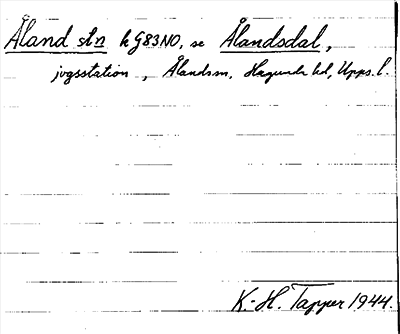 Åland stn k G83NO, se Ålandsdal,
jvgsstation, Ålands sn, Hagunda hd, Upps. l.
K.-H. Tapper 1944.